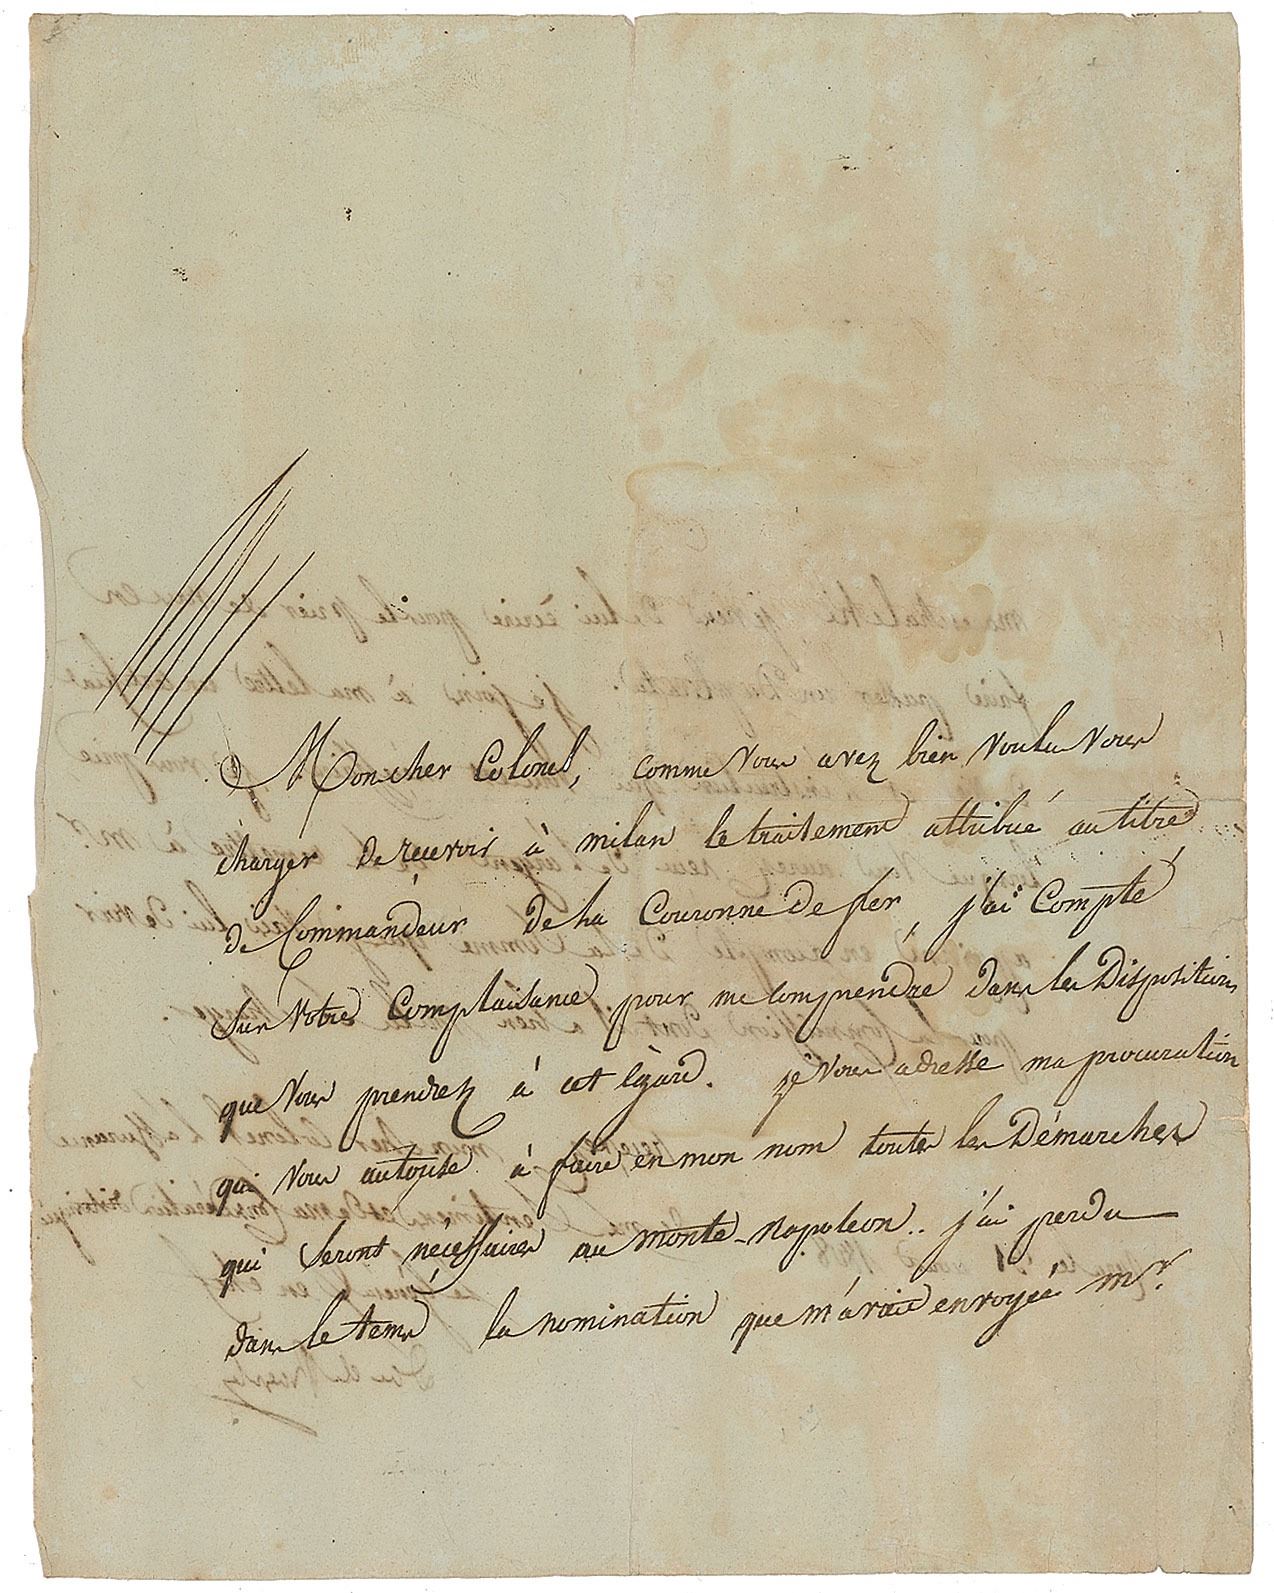 Mon cher Colonel, comme vous avez bien voulu vous
charger de recevoir à milan le traitement attribué au titre
de Commandeur de la Couronne de fer, j'ai Compté
Sur votre Complaisance pour me comprendre dans les Dispositions
que vous prendrez à cet égard. je vous adresse ma procuration
qui vous autorise à faire en mon nom toutes les Démarches
qui seront nécessaires au monte-Napoleon.. j'ai perdu
dans le tems la nomination que m'avait envoyée mr.